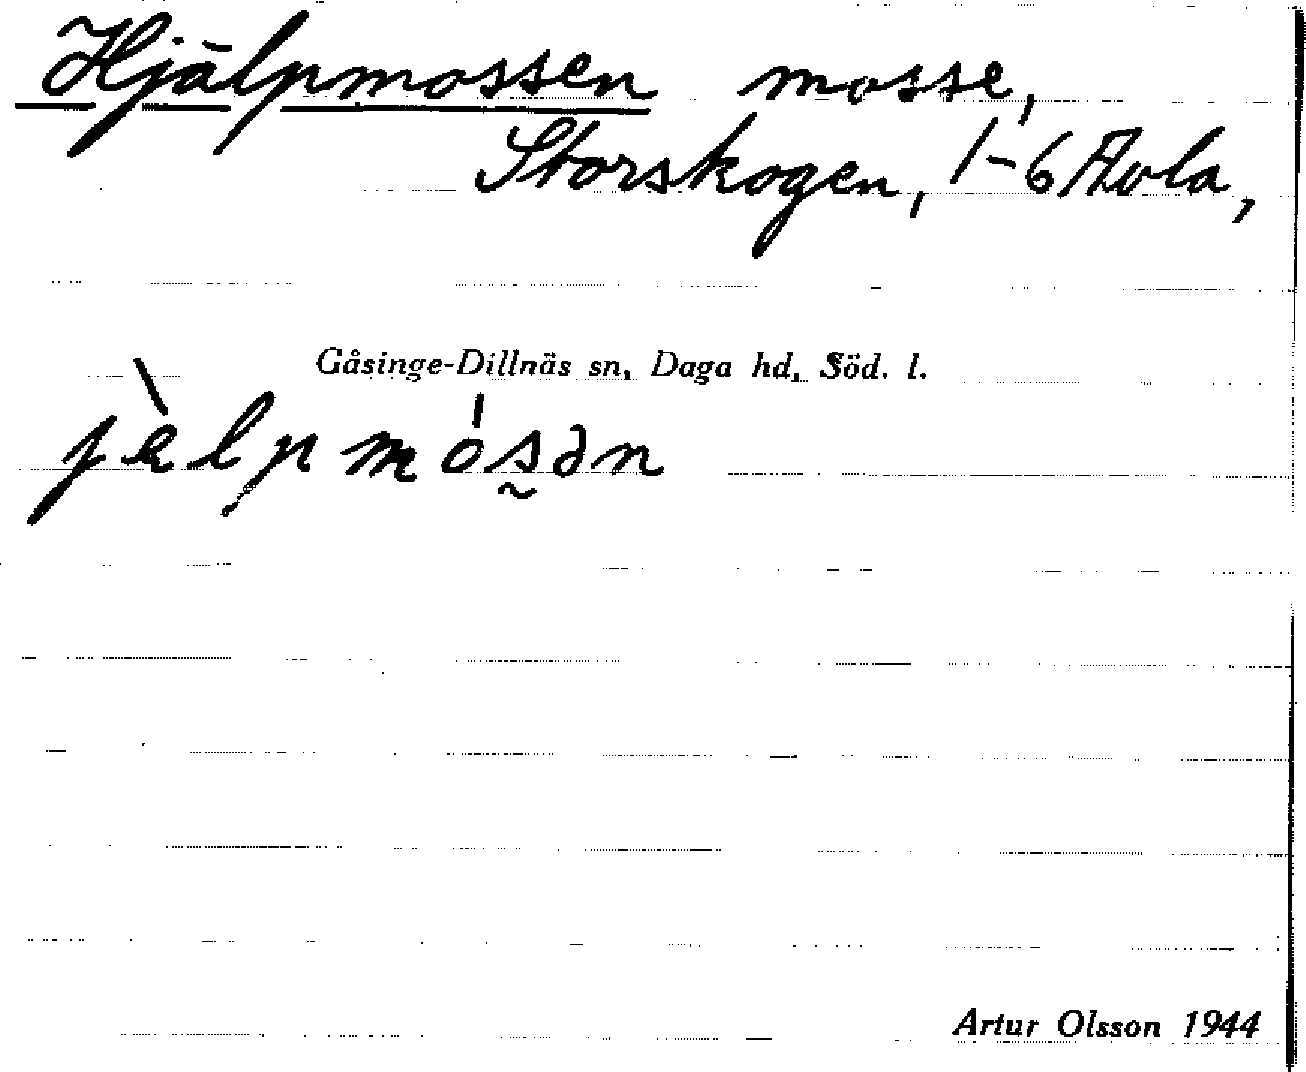 Hjälpmossen mosse,
Storskogen, 1-6 Åvla,
Gåsinge-Dillnäs sn, Daga hd, Söd. l.
jèlpmósən
Artur Olsson 1944